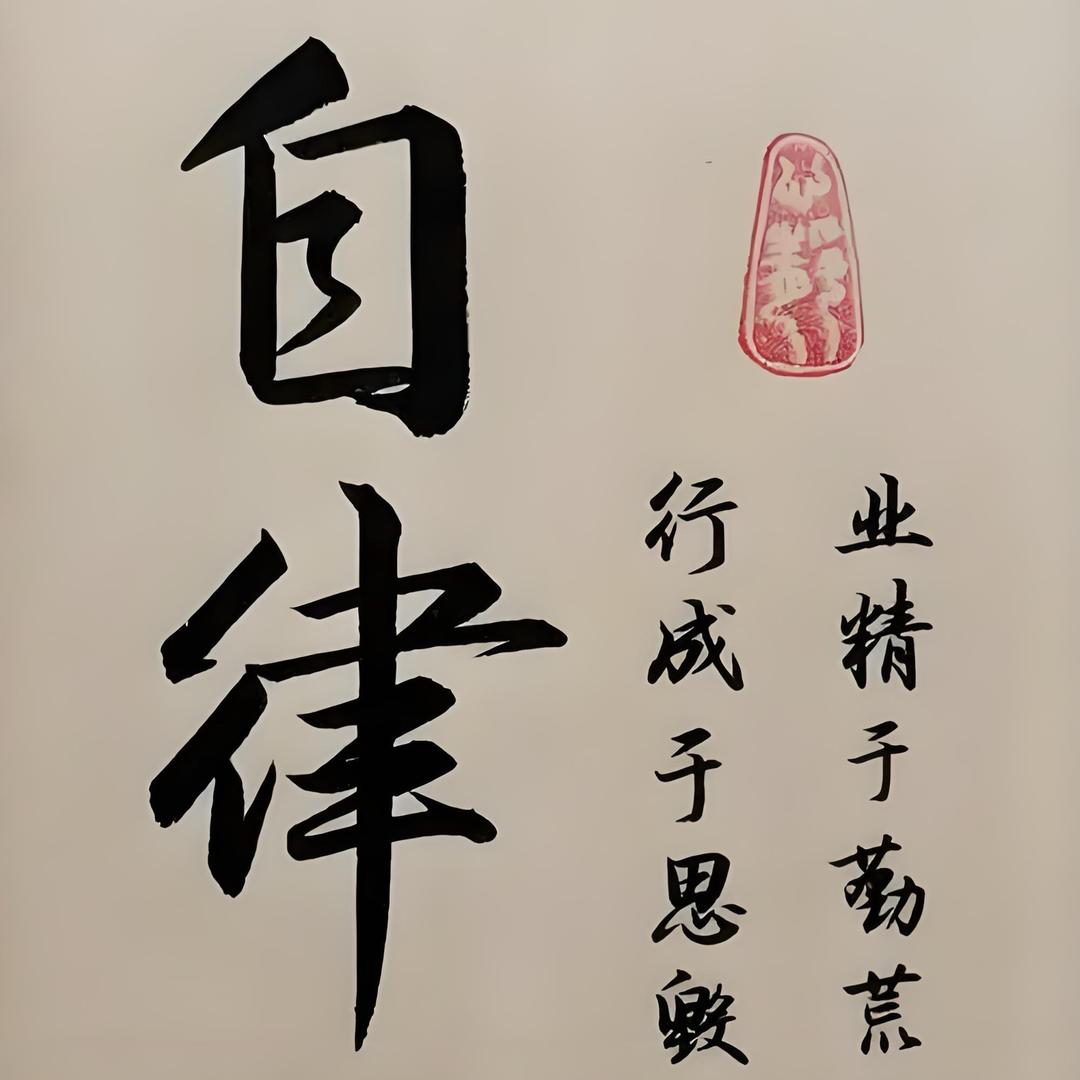 业精于勤荒
行成于思毁
自律